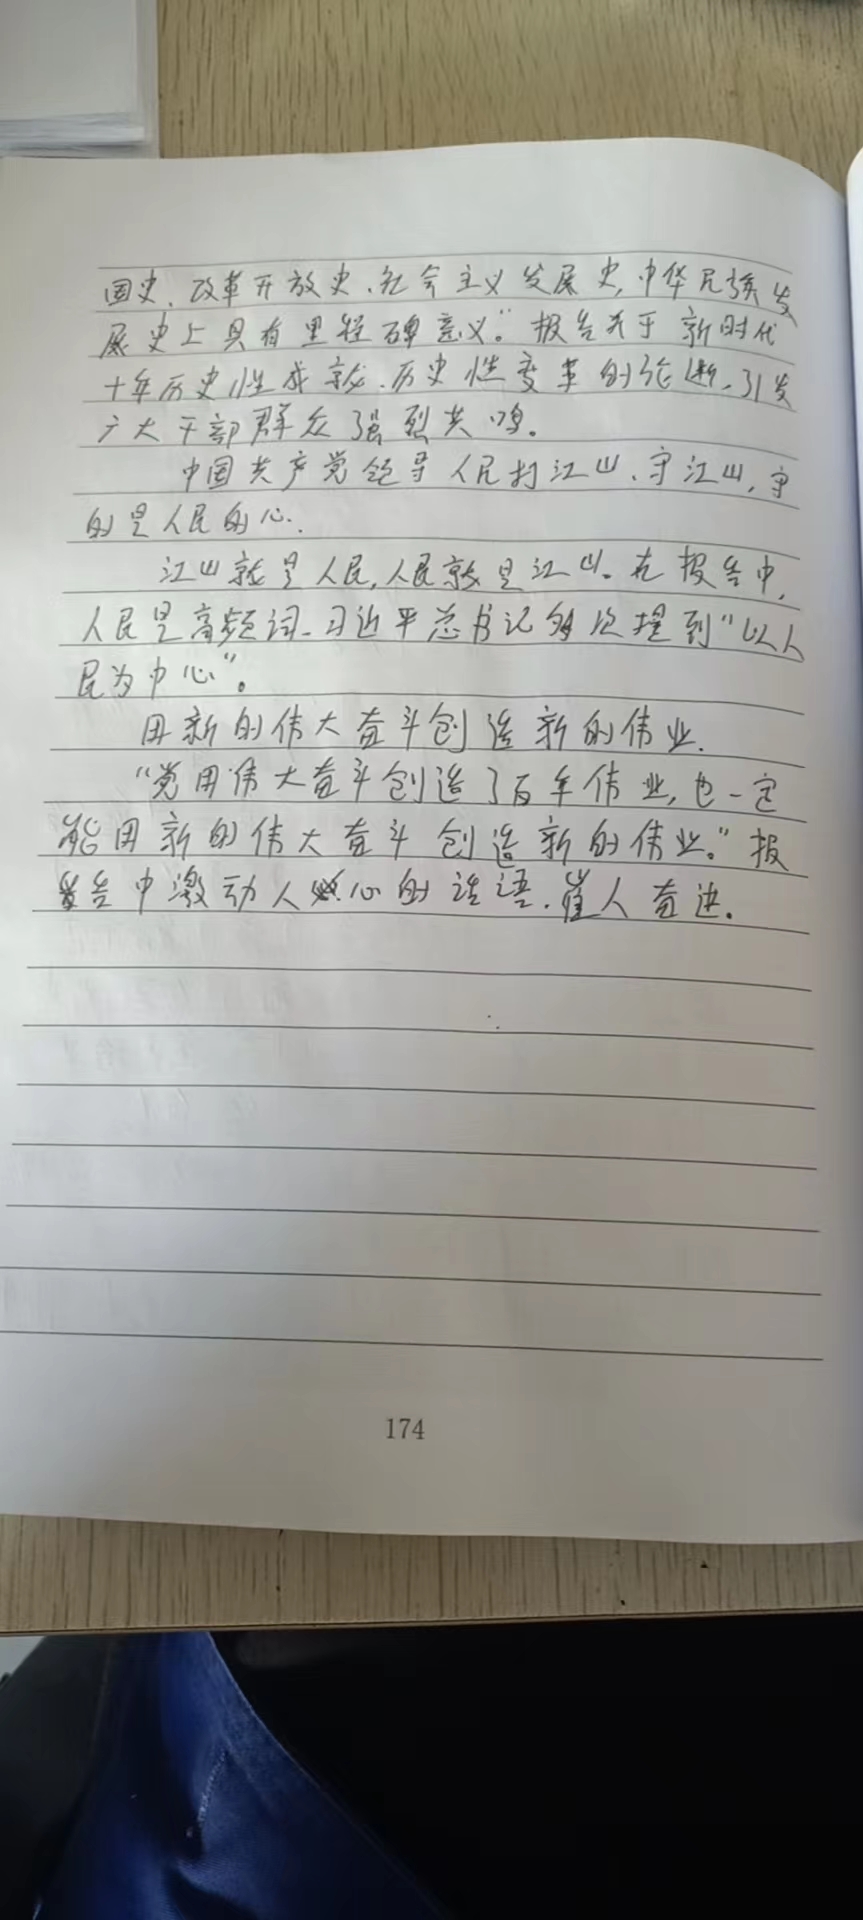 国史、改革开放史、社会主义发展史,中华民族发
展史上具有里程碑意义。”报告关于新时代
十年历史性成就、历史性变革的论断,引发
广大干部群众强烈共鸣。
中国共产党领导人民打江山、守江山,守
的是人民的心.
江山就是人民,人民就是江山。在报告中,
人民是高频词、习近平总书记多次提到“以人
民为中心”。
用新的伟大奋斗创造新的伟业.
“党用伟大奋斗创造了百年伟业,也一定
能用新的伟大奋斗创造新的伟业。”报
告中激动人心的话语,催人奋进。
174